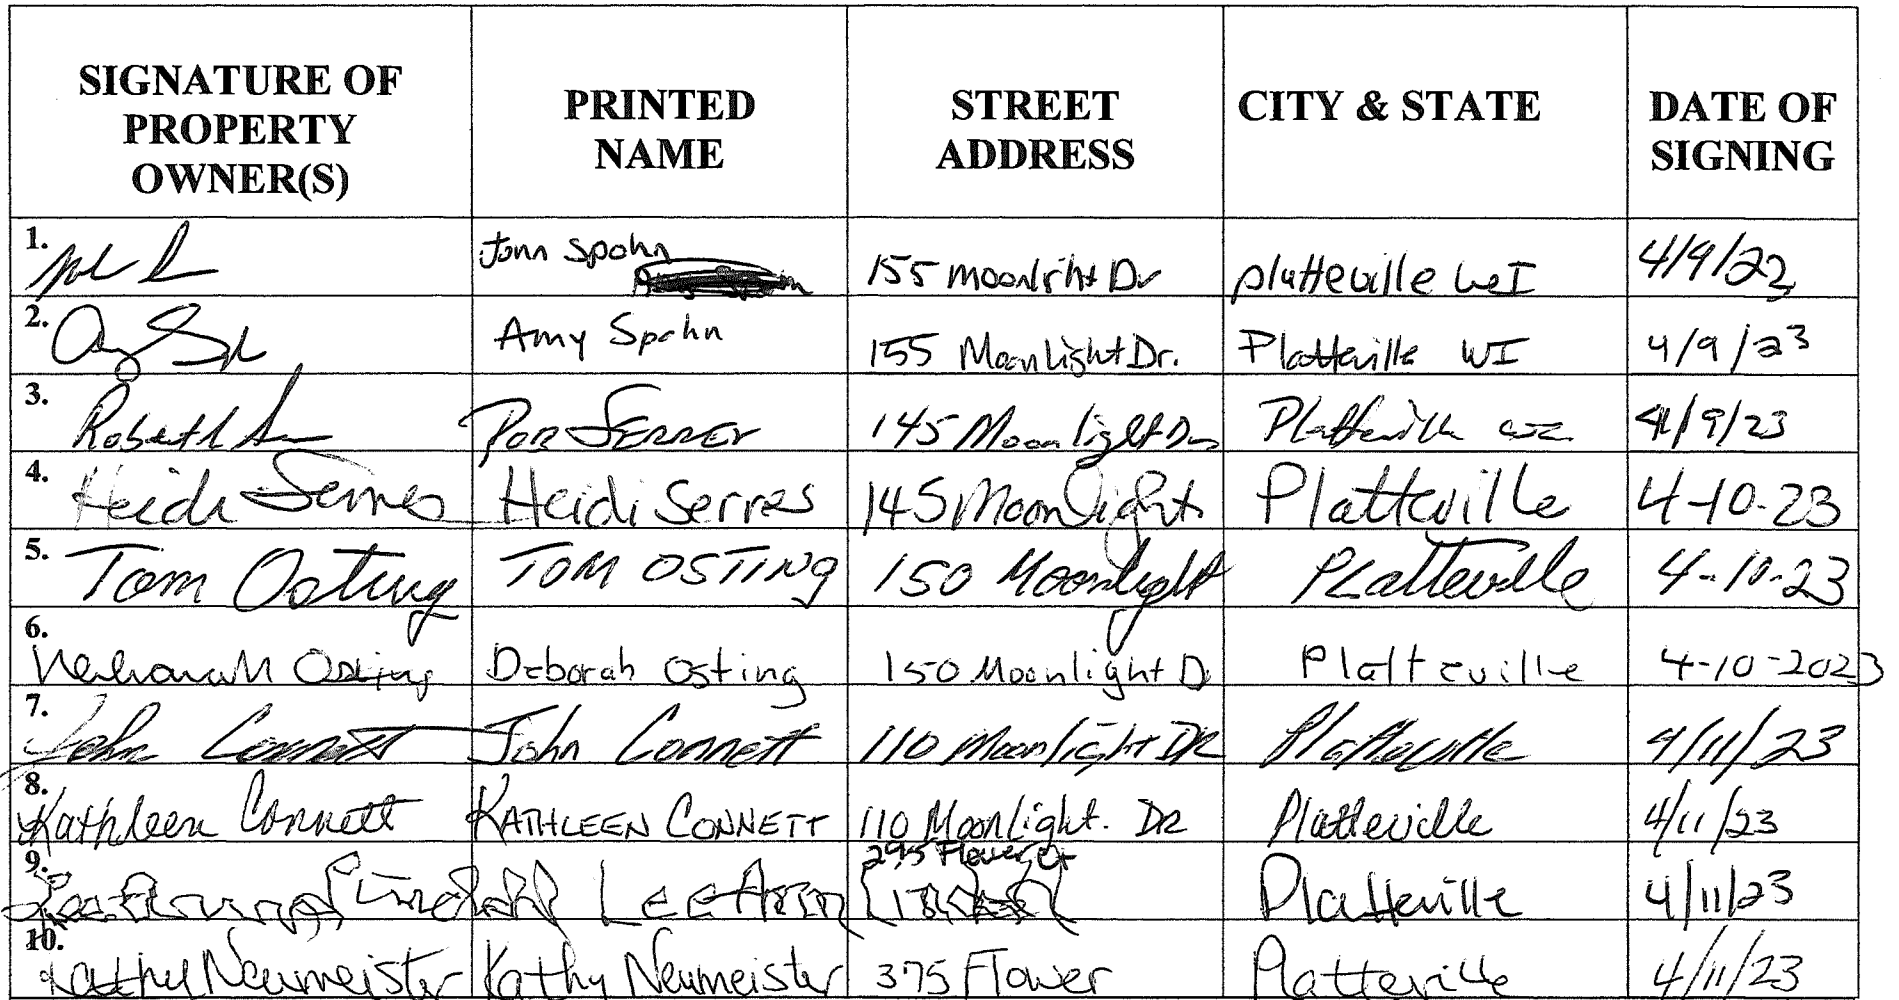 SIGNATURE OF PROPERTY OWNER(S) PRINTED NAME STREET ADDRESS CITY & STATE DATE OF SIGNING
1. John Spohn 155 moonlight Dr platteville WI 4/9/23
2. Amy Spohn 155 Moonlight Dr. Platteville WI 4/9/23
3. 145 Moonlight Dr Platteville WI 4/9/23
4. Heidi Serres Heidi Serres 145 Moonlight Platteville 4-10-23
5. Tom Osting TOM OSTING 150 Moonlight Platteville 4-10-23
6. Deborah Osting Deborah Osting 150 Moonlight D Platteville 4-10-2023
7. John Connett John Connett 110 Moonlight DR Platteville 4/11/23
8. Kathleen Connett KATHLEEN CONNETT 110 Moonlight. DR Platteville 4/11/23
9. LeeAnn 295 Flower Ct Platteville 4/11/23
10. Kathy Neumeister Kathy Neumeister 375 Flower Platteville 4/11/23